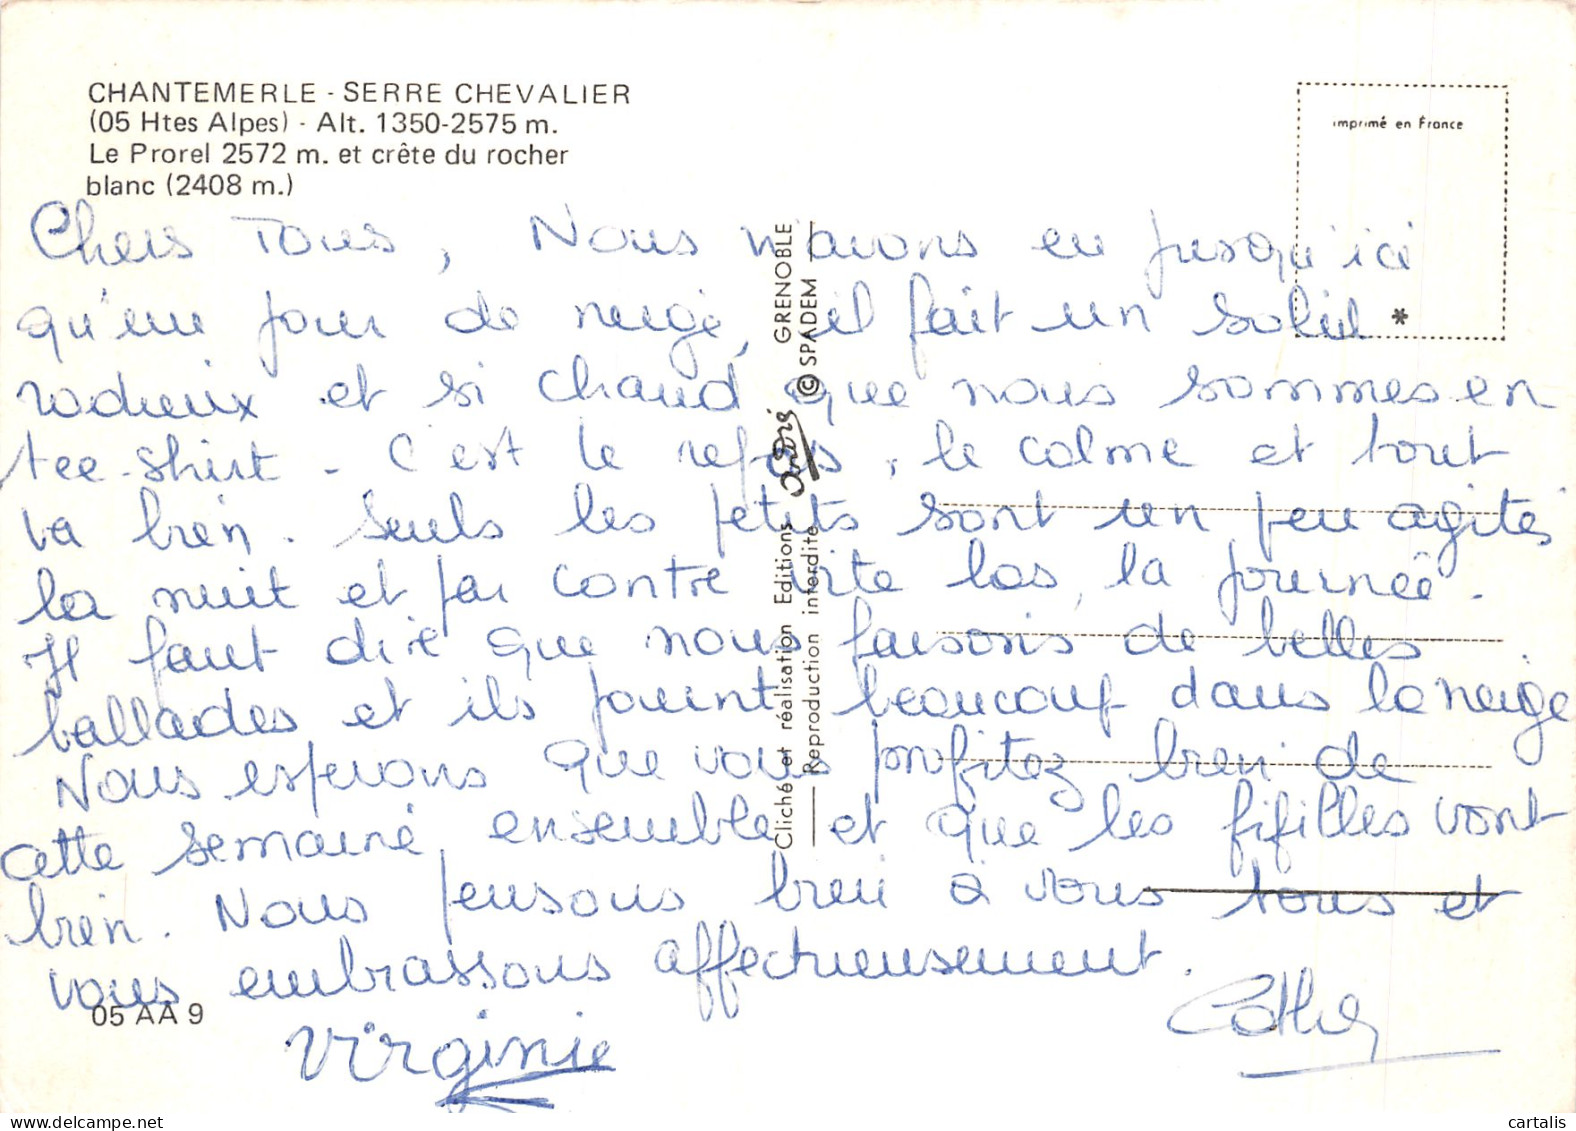 CHANTEMERLE - SERRE CHEVALIER
(05 Htes Alpes) - Alt. 1350-2575 m.
Le Prorel 2572 m. et crête du rocher
blanc (2408 m.)
imprimé en France
*
Chers Tous, Nous n'avons eu jusqu'ici
qu'un jour de neige, il fait un soleil
radieux et si chaud que nous sommes en
tee-shirt - C'est le repos, le calme et tout
va bien. Seuls les petits sont un peu agités
la nuit et par contre vite las, la journée.
Il faut dire que nous faisons de belles
ballades et ils jouent beaucoup dans la neige
Nous esperons que vous profitez bien de
cette semaine ensemble et que les fifilles vont
bien. Nous pensons bien à vous tous et
vous embrassons affectueusement.
Virginie
Cathy
05 AA 9
Cliché et réalisation Editions André GRENOBLE
Reproduction interdite © SPADEM
cartalis
www.delcampe.net